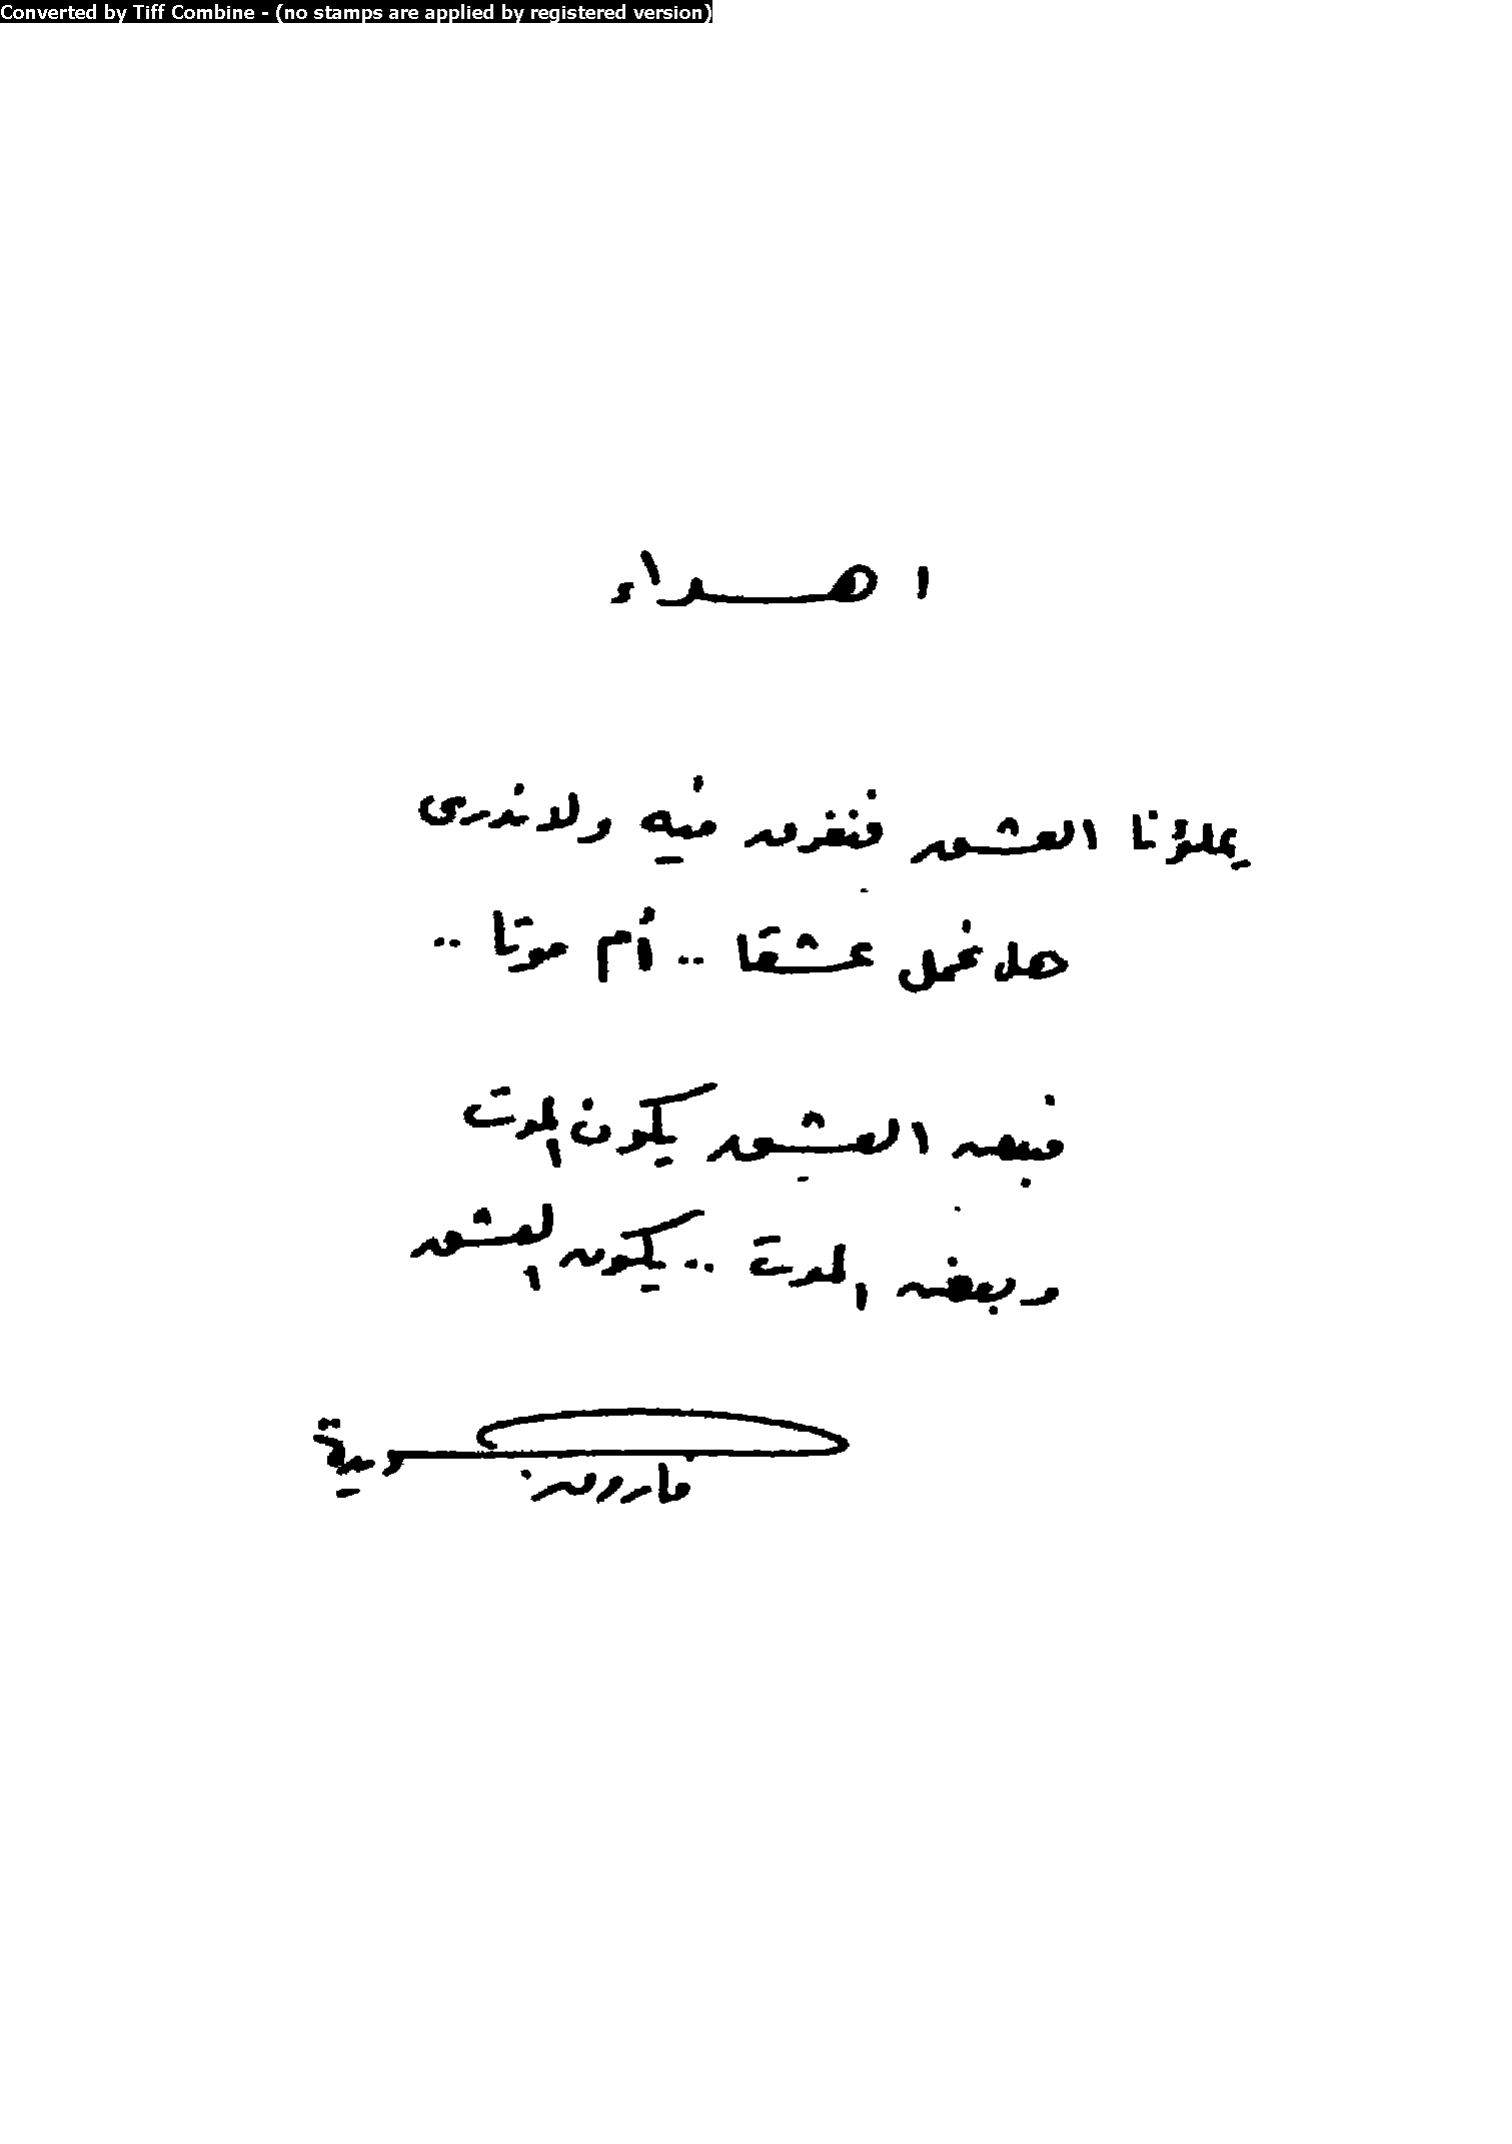 Converted by Tiff Combine - (no stamps are applied by registered version)
اهداء
يملؤنا العشق فنغرق فيه ولا ندرى
هل نحمل عشقا .. أم موتا ..
فبعض العشق يكون الموت
وبعض الموت .. يكون العشق
فاروق جويدة